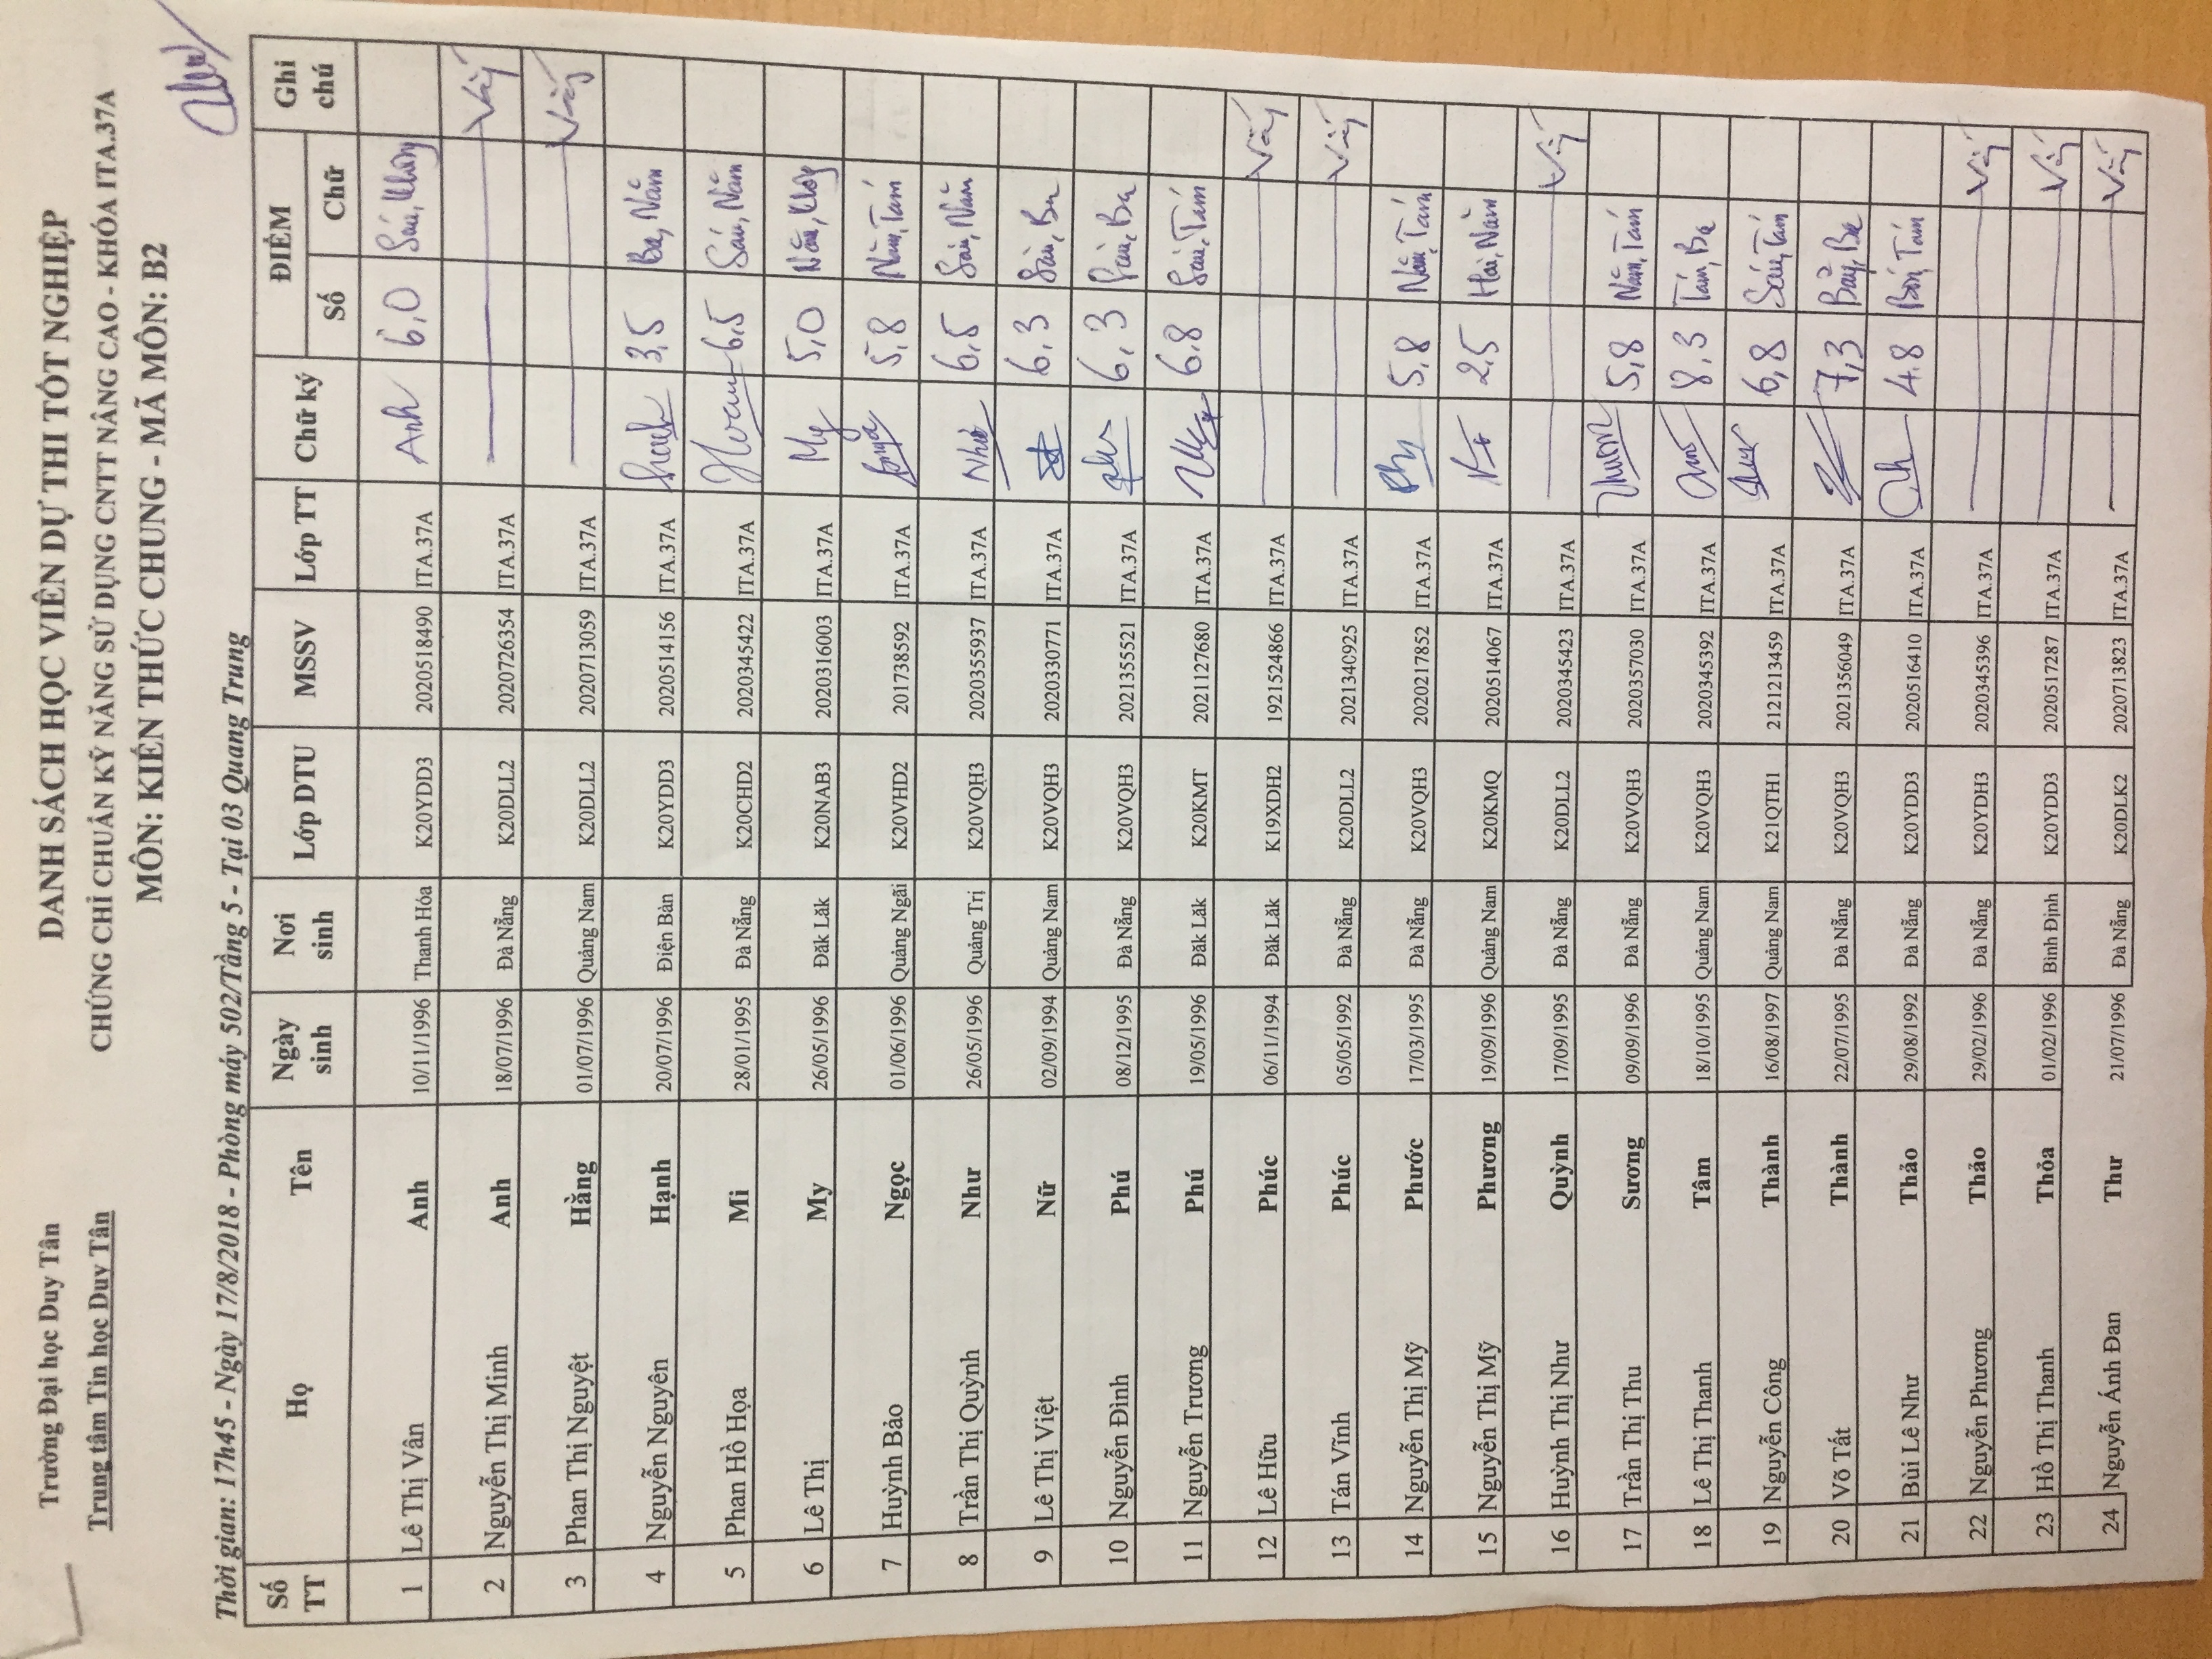 Trường Đại học Duy Tân
Trung tâm Tin học Duy Tân
DANH SÁCH HỌC VIÊN DỰ THI TỐT NGHIỆP
CHỨNG CHỈ CHUẨN KỸ NĂNG SỬ DỤNG CNTT NÂNG CAO - KHÓA ITA.37A
MÔN: KIẾN THỨC CHUNG - MÃ MÔN: B2
Thời gian: 17h45 - Ngày 17/8/2018 - Phòng máy 502/Tầng 5 - Tại 03 Quang Trung
Số TT Họ Tên Ngày sinh Nơi sinh Lớp DTU MSSV Lớp TT Chữ ký ĐIỂM Số Chữ Ghi chú
1 Lê Thị Vân Anh 10/11/1996 Thanh Hóa K20YDD3 2020518490 ITA.37A Anh 6,0 Sáu, Không
2 Nguyễn Thị Minh Anh 18/07/1996 Đà Nẵng K20DLL2 2020726354 ITA.37A Vắng
3 Phan Thị Nguyệt Hằng 01/07/1996 Quảng Nam K20DLL2 2020713059 ITA.37A Vắng
4 Nguyễn Nguyên Hạnh 20/07/1996 Điện Bàn K20YDD3 2020514156 ITA.37A 3,5 Ba, Năm
5 Phan Hồ Họa Mi 28/01/1995 Đà Nẵng K20CHD2 2020345422 ITA.37A 6,5 Sáu, Năm
6 Lê Thị My 26/05/1996 Đăk Lăk K20NAB3 2020316003 ITA.37A My 5,0 Năm, Không
7 Huỳnh Bảo Ngọc 01/06/1996 Quảng Ngãi K20VHD2 2021738592 ITA.37A 5,8 Năm, Tám
8 Trần Thị Quỳnh Như 26/05/1996 Quảng Trị K20VQH3 2020355937 ITA.37A Như 6,5 Sáu, Năm
9 Lê Thị Việt Nữ 02/09/1994 Quảng Nam K20VQH3 2020330771 ITA.37A 6,3 Sáu, Ba
10 Nguyễn Đình Phú 08/12/1995 Đà Nẵng K20VQH3 2021355521 ITA.37A 6,3 Sáu, Ba
11 Nguyễn Trương Phú 19/05/1996 Đăk Lăk K20KMT 2021127680 ITA.37A 6.8 Sáu, Tám
12 Lê Hữu Phúc 06/11/1994 Đăk Lăk K19XDH2 1921524866 ITA.37A Vắng
13 Tán Vĩnh Phúc 05/05/1992 Đà Nẵng K20DLL2 2021340925 ITA.37A Vắng
14 Nguyễn Thị Mỹ Phước 17/03/1995 Đà Nẵng K20VQH3 2020217852 ITA.37A 5,8 Năm, Tám
15 Nguyễn Thị Mỹ Phương 19/09/1996 Quảng Nam K20KMQ 2020514067 ITA.37A 2,5 Hai, Năm
16 Huỳnh Thị Như Quỳnh 17/09/1995 Đà Nẵng K20DLL2 2020345423 ITA.37A Vắng
17 Trần Thị Thu Sương 09/09/1996 Đà Nẵng K20VQH3 2020357030 ITA.37A 5,8 Năm, Tám
18 Lê Thị Thanh Tâm 18/10/1995 Quảng Nam K20VQH3 2020345392 ITA.37A 8,3 Tám, Ba
19 Nguyễn Công Thành 16/08/1997 Quảng Nam K21QTH1 2121213459 ITA.37A 6,8 Sáu, Tám
20 Võ Tất Thành 22/07/1995 Đà Nẵng K20VQH3 2021356049 ITA.37A 7,3 Bảy, Ba
21 Bùi Lê Như Thảo 29/08/1992 Đà Nẵng K20YDD3 2020516410 ITA.37A 4.8 Bốn, Tám
22 Nguyễn Phương Thảo 29/02/1996 Đà Nẵng K20YDH3 2020345396 ITA.37A Vắng
23 Hồ Thị Thanh Thỏa 01/02/1996 Bình Định K20YDD3 2020517287 ITA.37A Vắng
24 Nguyễn Ánh Đan Thư 21/07/1996 Đà Nẵng K20DLK2 2020713823 ITA.37A Vắng